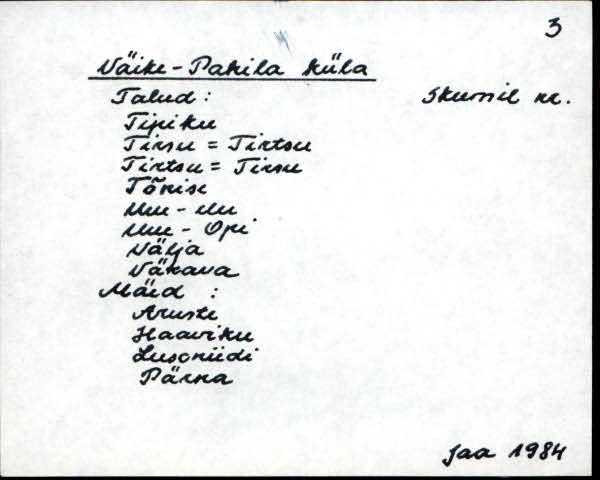 3
Väike-Pahila küla
Talud : Skemsil nr.
Tipiku
Tirsu = Tirtsu
Tirtsu = Tirsu
Tõnise
Uue-
Uue-Opi
Välja
Värava
Mäed :
Aruste
Haaviku
Pärna
Jaa 1984